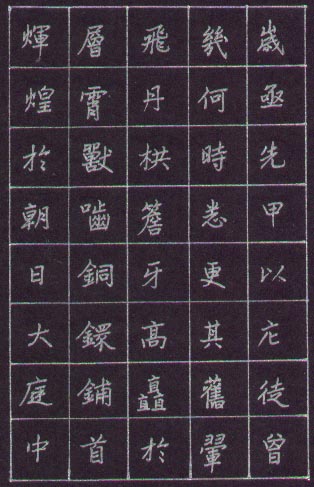 歲亟先甲以庀徒曾
幾何時悉更其舊翬
飛丹栱簷牙高矗於
層霄獸嚙銅鐶鋪首
煇煌於朝日大庭中